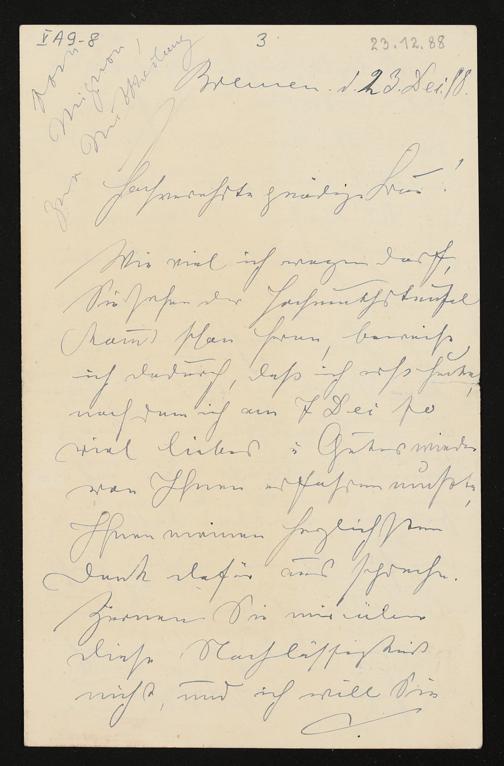 V A9-8
3
23.12.88
Bremen. d. 23. Dei. 88.
Hochverehrte gnädige Frau!
Wie viel ich wagen darf,
Sie sehen der Hochmuthsteufel
kommt schon heran, beweist
ich dadurch, daß ich erst heute,
nachdem ich am 7 Dei so
viel liebes u Gutes wieder
von Ihnen erfahren mußte,
Ihnen meinen herzlichsten
Dank dafür aus spreche.
Zürnen Sie mir
diese Nachlässigkeit
nicht, und ich will Sie